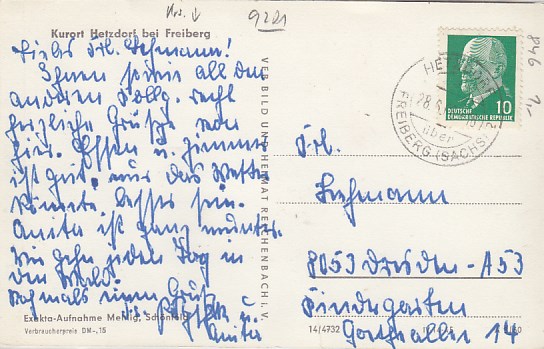 9221
846
1,-
Kurort Hetzdorf bei Freiberg
Liebes Frl. Lehmann!
Ihnen sowie all den
anderen Kollg. recht
herzliche Grüße von
hier. Essen u. Zimmer
ist gut, nur das Wetter
könnte besser sein.
Anita ist ganz munter.
Wir gehn jeden Tag in
den Wald.
Nochmals einen Gruß
u. Anita
Exakta-Aufnahme Meinig, Schönfeld
Verbraucherpreis DM -,15
VERB BILD UND HEIMAT REICHENBACH i. V.
HETZDORF
28.6.
über
FREIBERG (SACHS)
10
DEUTSCHE
DEMOKRATISCHE REPUBLIK
Frl.
Lehmann
8053 Dresden-A53
Kindergarten
Goetheallee 14
14/4732